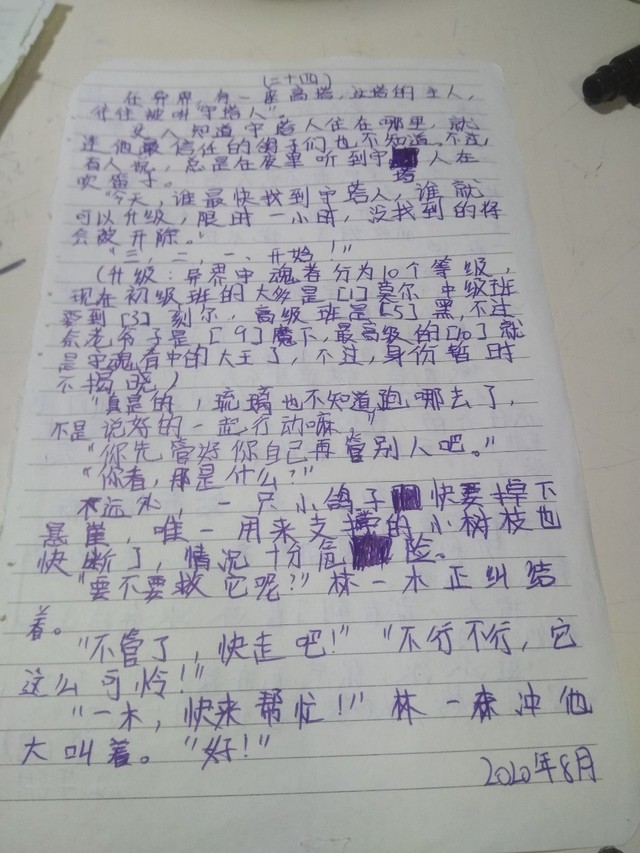 (二十四)
在异界,有一座高塔,这塔的主人,
往往被叫"守塔人"。
人知道守塔人住在哪里,就
连他最信任的鸽子们也不知道。不过,
有人说,总是在夜里听到守塔人在
吹笛子。
"今天,谁最快找到守塔人,谁就
可以升级,限时一小时,没找到的将
会被开除。"
"三,二,一、开始!"
(升级:异界中魂者分为10个等级,
现在初级班的大多是[1]莫尔 中级班
要到[3]刻尔,高级班是[5]黑,不过
子是[9]魔下,最高级的[10]就
是守魂者中的大王了,不过,身份暂时
不揭晓)
"真是的,琉璃也不知道跑哪去了,
不是说好的一起行动嘛,"
"你先管好你自己再管别人吧。"
"你看,那是什么?"
不远处,一只小鸽子快要掉下
悬崖,唯一用来支撑的小树枝也
快断了,情况十分危险。
"要不要救它呢?"林一木正纠结
着。
"不管了,快走吧!""不行不行,它
这么可怜!"
"一木,快来帮忙!"林一森冲他
大叫着。"好!"
2020年8月